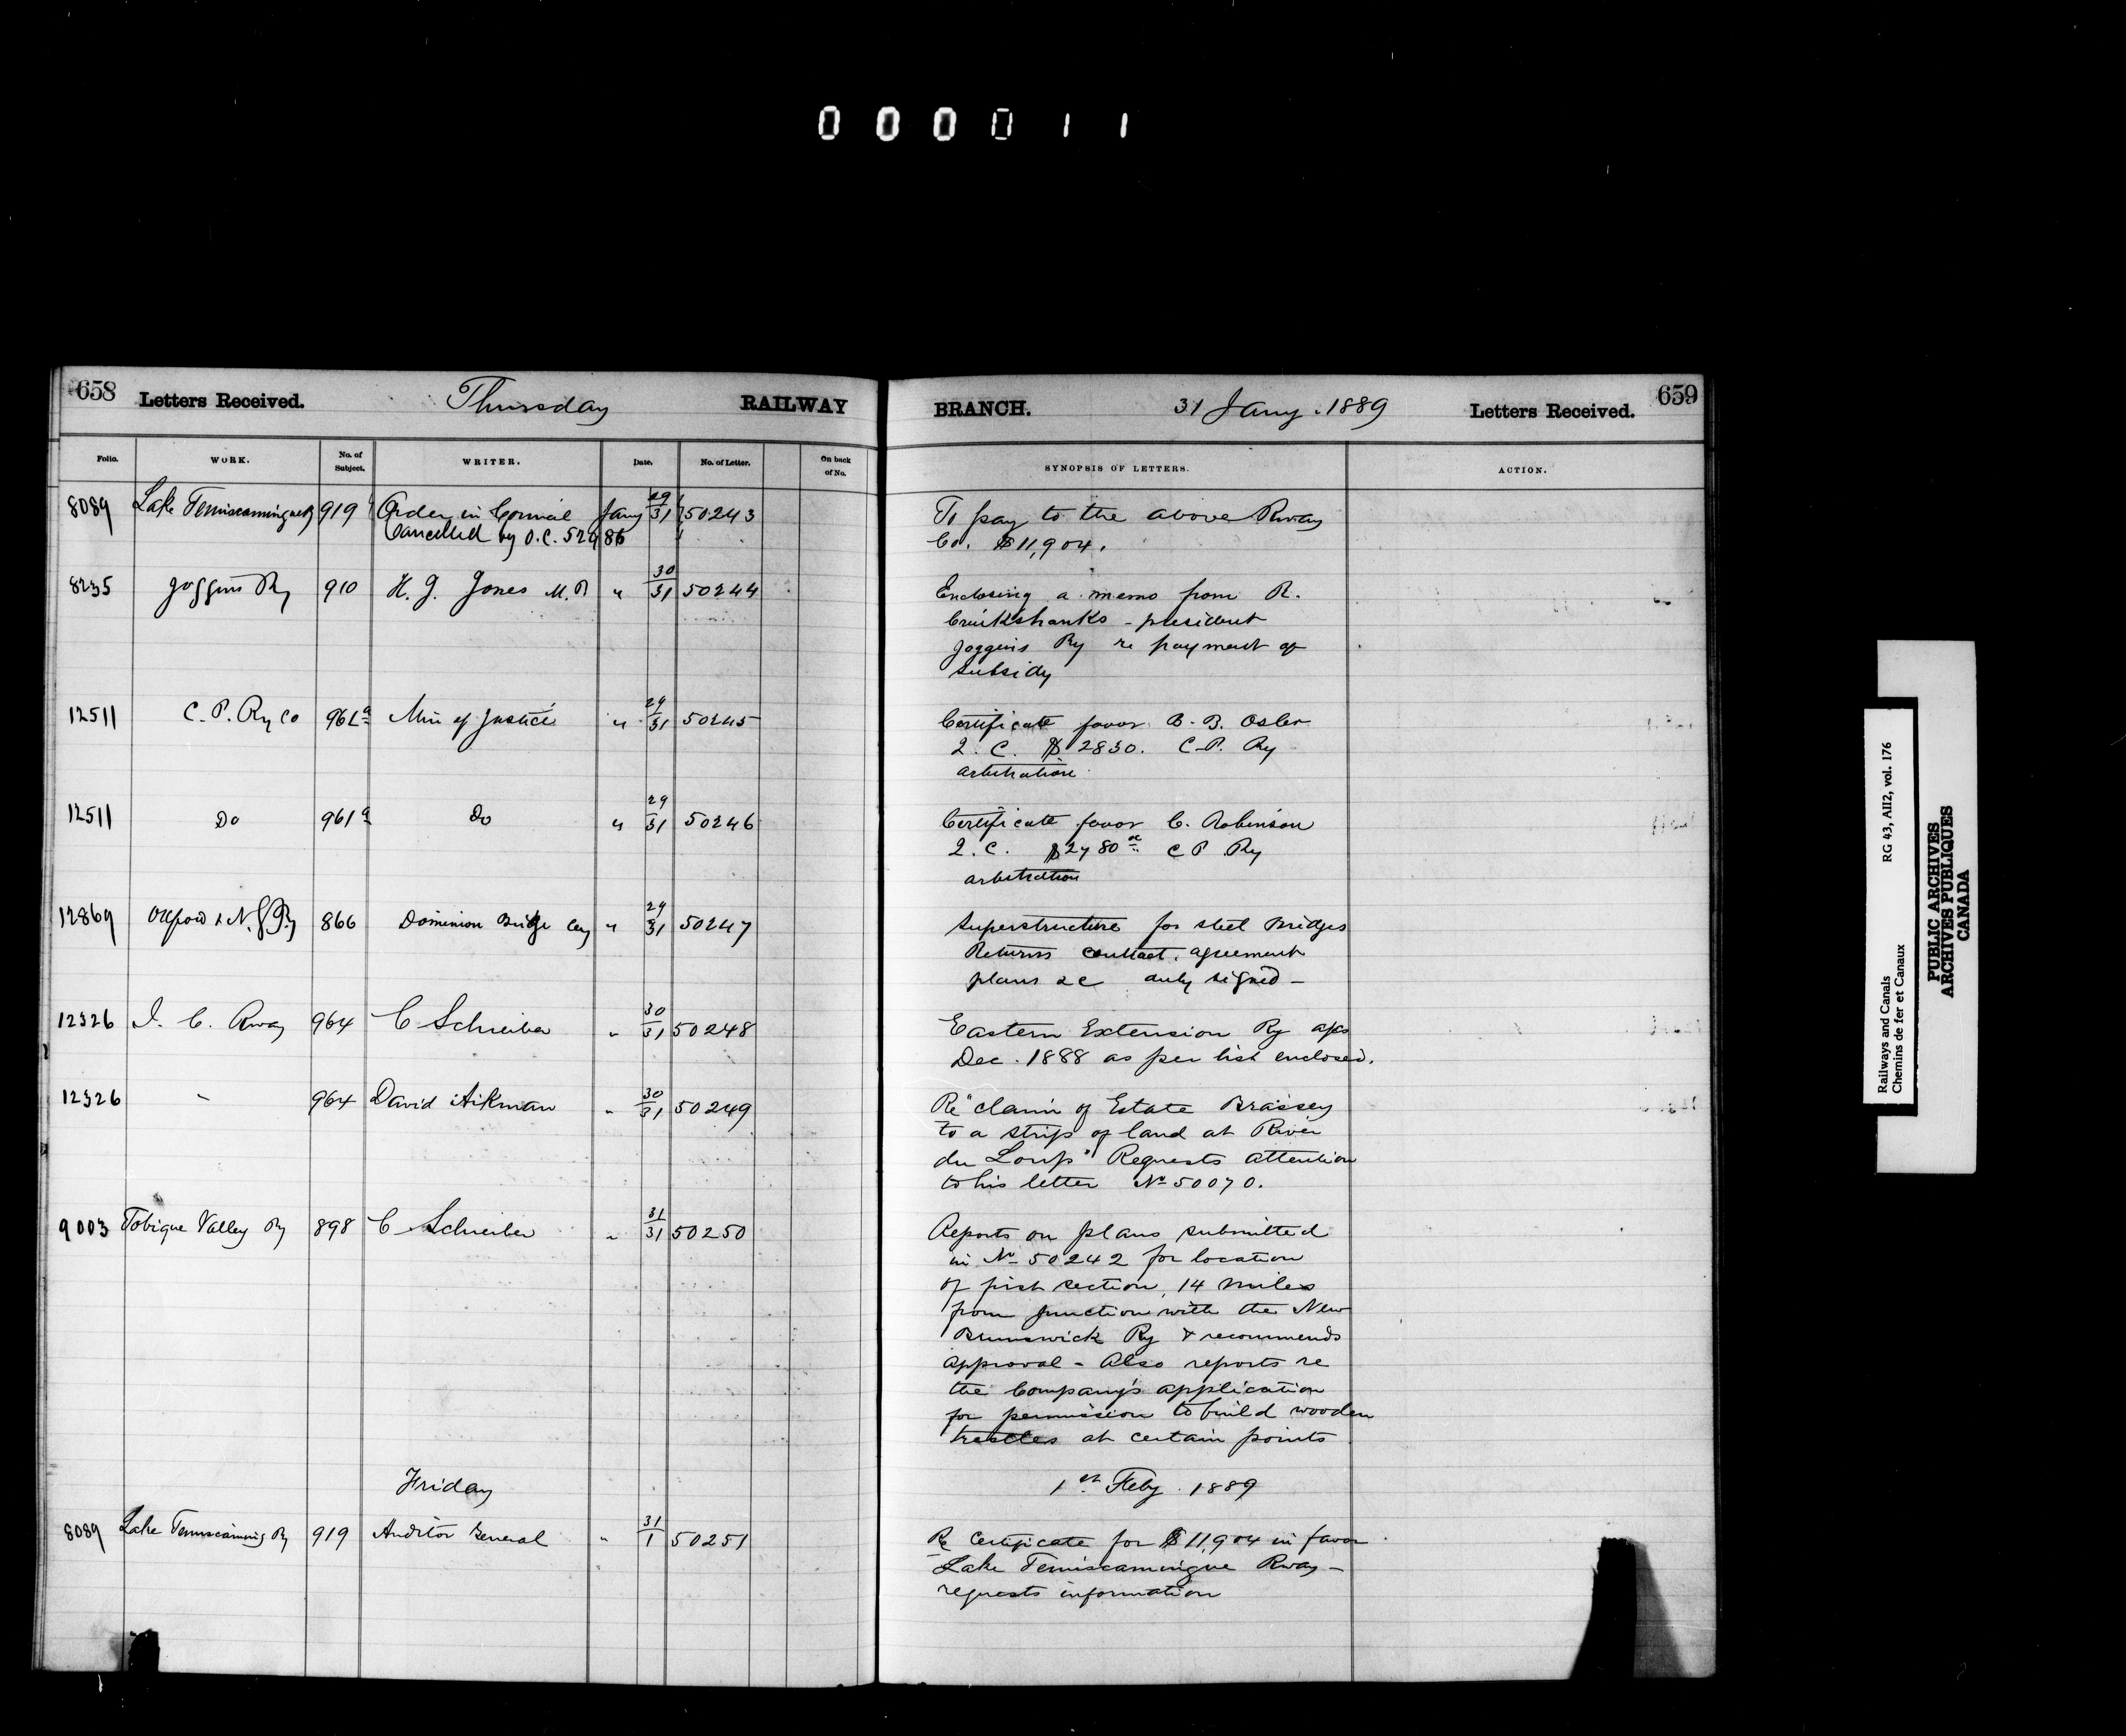 000011
658 Letters Received. Thursday RAILWAY
BRANCH. 31 Jany. 1889 Letters Received. 659
Folio. WORK. No. of Subject. WRITER. Date. No. of Letter. On back of No. SYNOPSIS OF LETTERS. ACTION.
8089 Lake Temiscamingue Ry 919 Order in Council Jany 29/31 50243 To pay to the above Rway
Cancelled by O.C. 52486 Co. $11,904.
8235 Joggins Ry 910 H. J. Jones M.P " 30/31 50244 Enclosing a memo from R.
Cruikshanks - president
Joggins Ry re payment of
Subsidy
12511 C. P. Ry Co 961a Min of Justice " 29/31 50245 Certificate favor B. B. Osler
Q. C. $2830. C.P. Ry
arbitration
12511 Do 961a Do " 29/31 50246 Certificate favor C. Robinson
Q. C. $2780 C P Ry
arbitration
12869 Oxford & N. G. Ry 866 Dominion Bridge Coy " 29/31 50247 Superstructure for steel Bridges
Returns contract, agreement
plans &c duly signed -
12326 I. C. Rway 964 C Schreiber " 30/31 50248 Eastern Extension Ry a/cs
Dec. 1888 as per list enclosed.
12326 " 964 David Aikman " 30/31 50249 Re "claim of Estate Brassey
to a strip of land at River
du Loup" Requests attention
to his letter No 50070.
9003 Tobique Valley Ry 898 C Schreiber " 31/31 50250 Reports on plans submitted
in No 50242 for location
of first section, 14 miles
from junction with the New
Brunswick Ry & recommends
approval - Also reports re
the Company's application
for permission to build wooden
trestles at certain points
Friday 1st Feby. 1889
8089 Lake Temiscaming Ry 919 Auditor General " 31/1 50251 Re Certificate for $11,904 in favor
Lake Temiscamingue Rway -
requests information
Railways and Canals RG 43, AII2, vol. 176
Chemins de fer et Canaux
PUBLIC ARCHIVES
ARCHIVES PUBLIQUES
CANADA